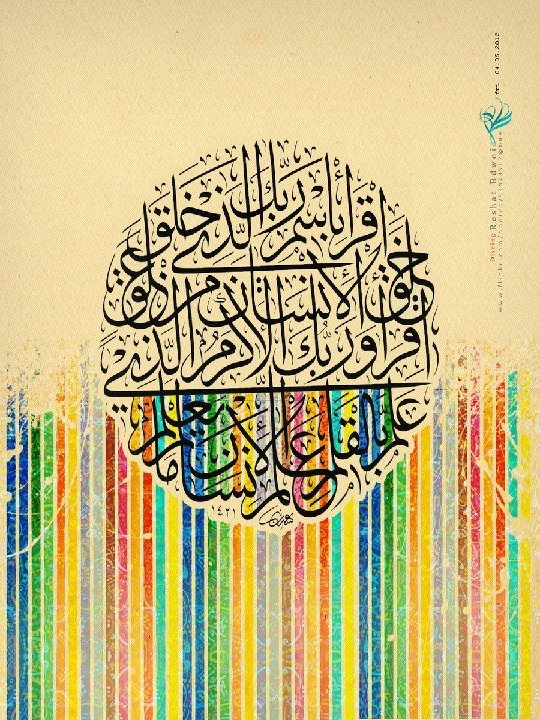 اقرأ باسم ربك الذي خلق
خلق الإنسان من علق
اقرأ وربك الأكرم الذي
علم بالقلم علم الإنسان ما لم يعلم
١٤٢١
Reshat Bdwei